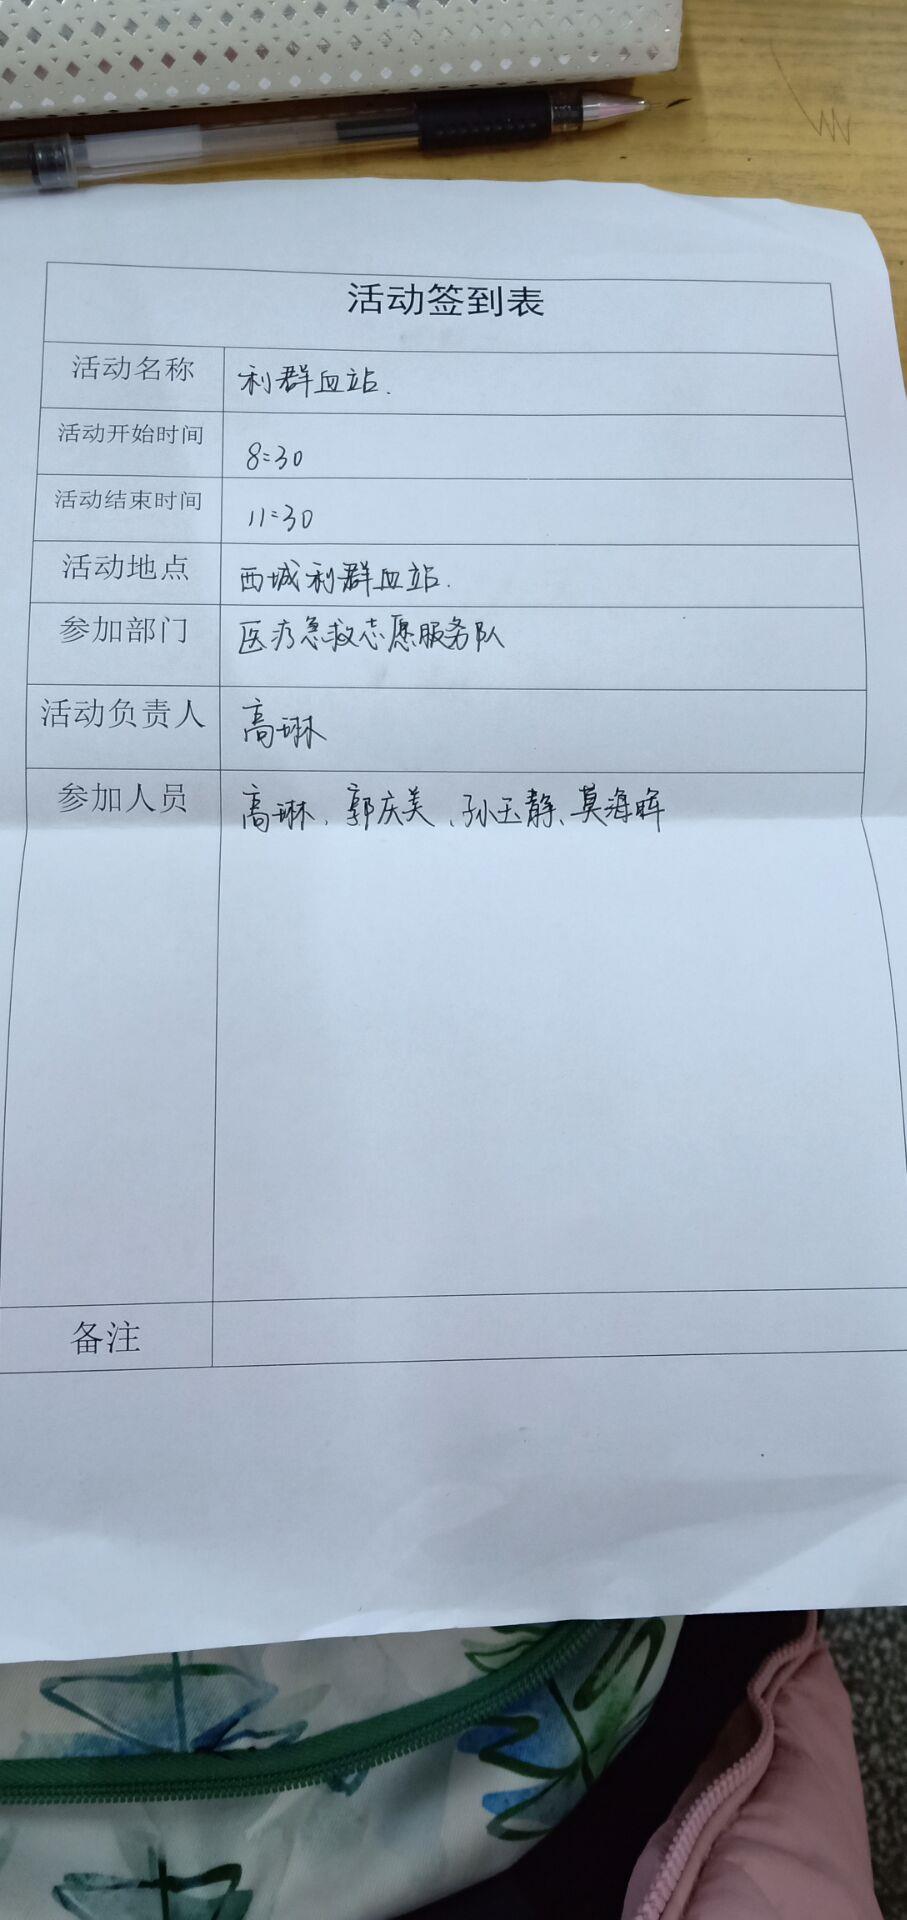 活动签到表
活动名称 利群血站.
活动开始时间 8:30
活动结束时间 11:30
活动地点 西城利群血站.
参加部门 医疗急救志愿服务队
活动负责人 高琳
参加人员 高琳、郭庆美、孙玉静、莫海晖
备注